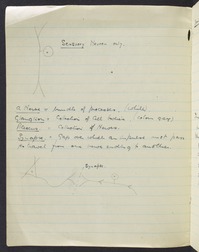 Sensory Nerve
A Nerve = bundle of processes. (white)
Ganglion = Collection of Cell bodies. (colour grey)
= Collection of Nerves.
Synapse = Gap over which an impulse must pass
to travel from one nerve ending to another
Synapse.